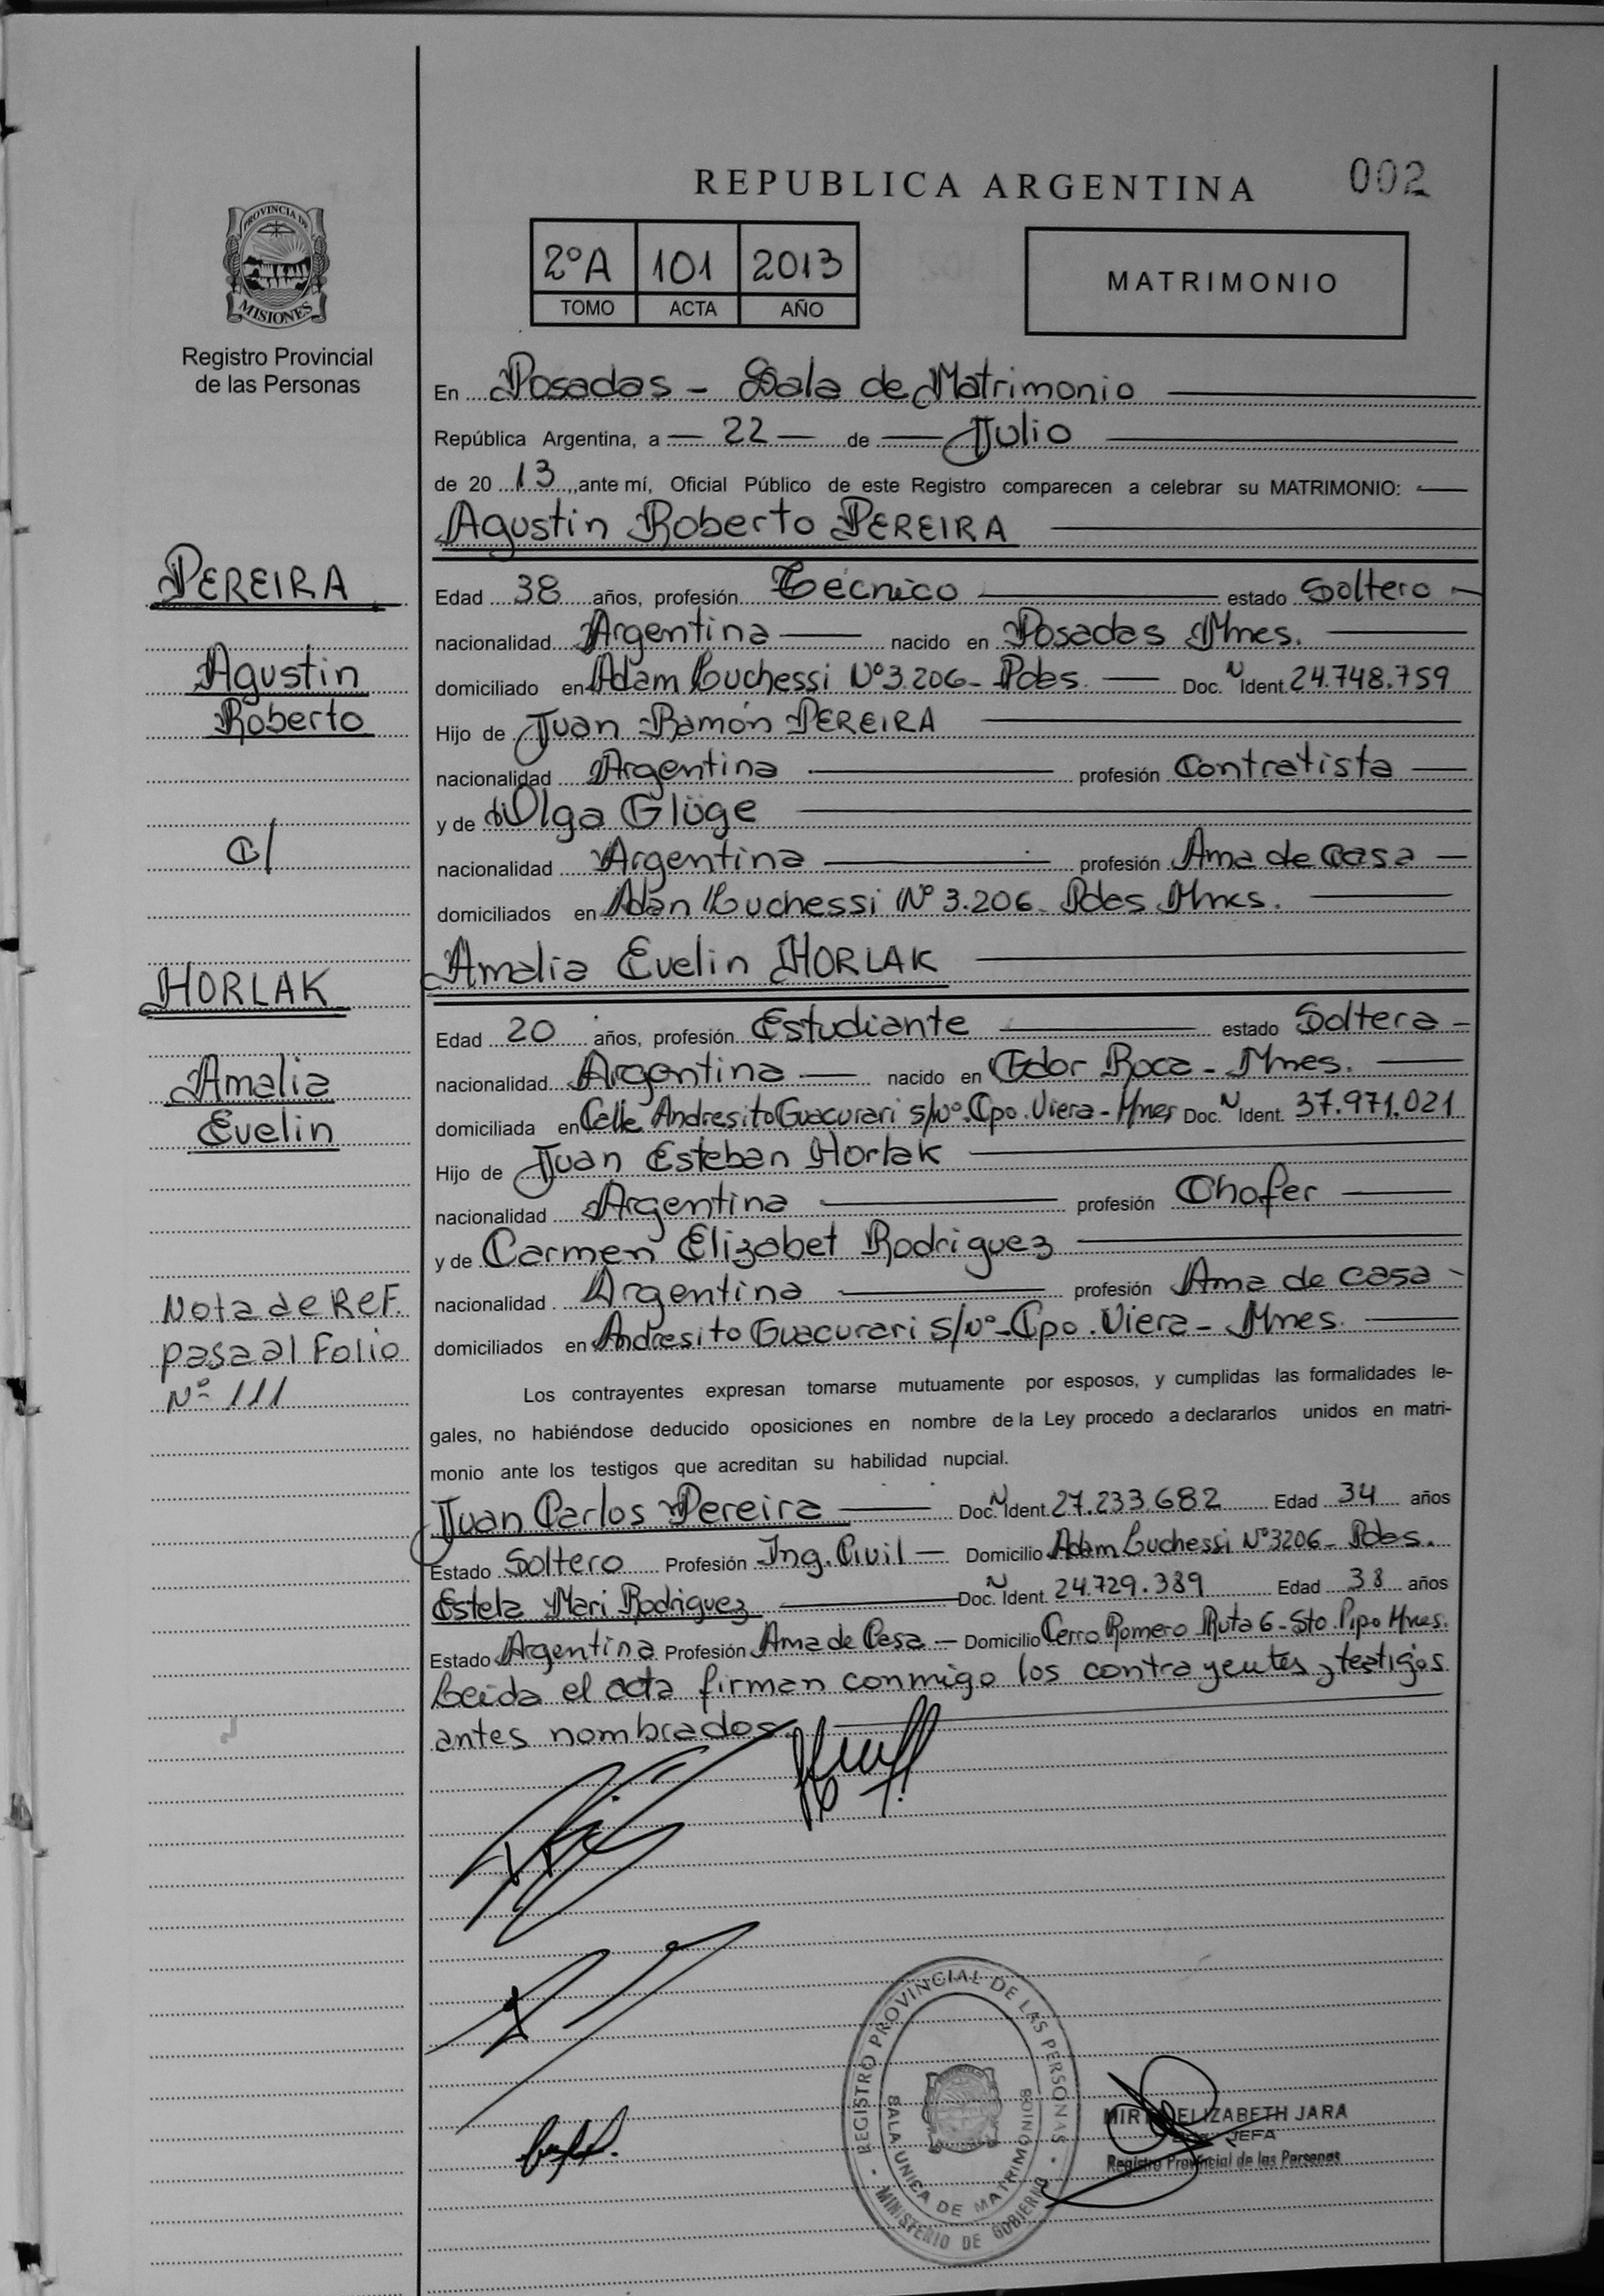 REPUBLICA ARGENTINA
002
PROVINCIA DE
MISIONES
Registro Provincial
de las Personas
2ºA 101 2013
TOMO ACTA AÑO
MATRIMONIO
En Posadas - Sala de Matrimonio
República Argentina, a 22 de Julio
de 2013, ante mí, Oficial Público de este Registro comparecen a celebrar su MATRIMONIO:
Agustin Roberto PEREIRA
PEREIRA
Agustin
Roberto
c/
HORLAK
Amalia
Evelin
Nota de Ref.
pasa al Folio
Nº 111
Edad 38 años, profesión Técnico estado Soltero
nacionalidad Argentina nacido en Posadas Mnes.
domiciliado en Adam Luchessi Nº 3.206 - Pdas. Doc. N Ident. 24.748.759
Hijo de Juan Ramón PEREIRA
nacionalidad Argentina profesión Contratista
y de Olga Glüge
nacionalidad Argentina profesión Ama de casa
domiciliados en Adan Luchessi Nº 3.206 - Pdas Mnes.
Amalia Evelin HORLAK
Edad 20 años, profesión Estudiante estado Soltera
nacionalidad Argentina nacido en Gdor Roca - Mnes.
domiciliada en Calle Andresito Guacurari s/nº - Cpo. Viera - Mnes Doc. N Ident. 37.971.021
Hijo de Juan Esteban Horlak
nacionalidad Argentina profesión Chofer
y de Carmen Elizabet Rodriguez
nacionalidad Argentina profesión Ama de casa
domiciliados en Andresito Guacurari s/nº - Cpo. Viera - Mnes.
Los contrayentes expresan tomarse mutuamente por esposos, y cumplidas las formalidades le-
gales, no habiéndose deducido oposiciones en nombre de la Ley procedo a declararlos unidos en matri-
monio ante los testigos que acreditan su habilidad nupcial.
Juan Carlos Pereira Doc. N Ident. 27.233.682 Edad 34 años
Estado Soltero Profesión Ing. Civil Domicilio Adam Luchessi Nº 3206 - Pdas.
Estela Mari Rodriguez Doc. N Ident. 24.729.389 Edad 38 años
Estado Argentina Profesión Ama de Casa Domicilio Cerro Romero Ruta 6 - Sto. Pipo Mnes.
Leida el acta firman conmigo los contrayentes y testigos
antes nombrados.
REGISTRO PROVINCIAL DE LAS PERSONAS
SALA UNICA DE MATRIMONIOS
MINISTERIO DE GOBIERNO
ELIZABETH JARA
JEFA
Registro Provincial de las Personas